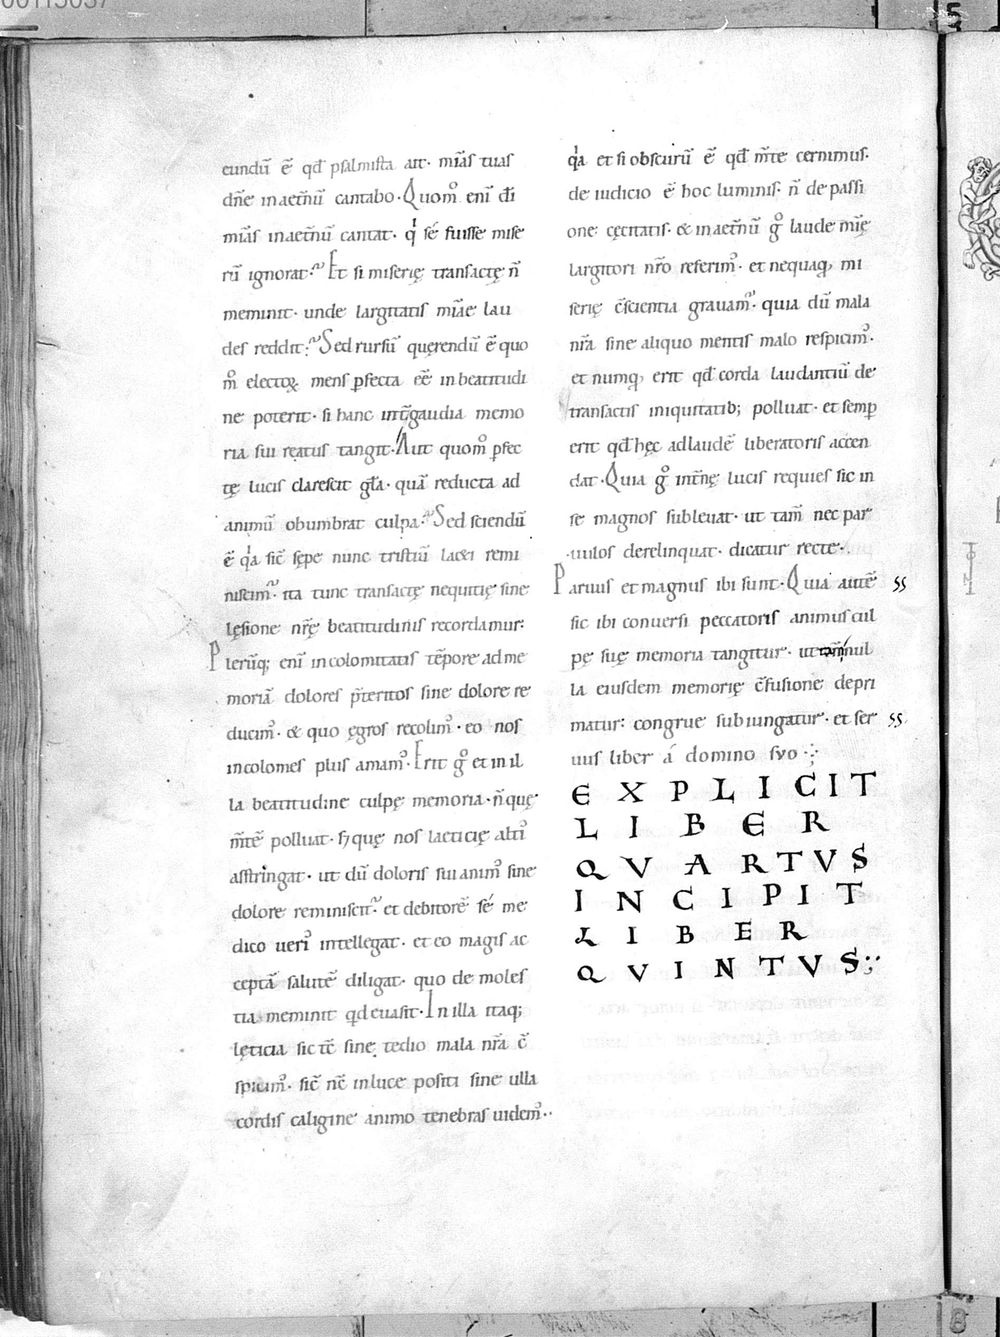 00115037
5
eundū ē qd̄ psalmista ait· mias̄ tuas
dn̄e in aet̄nū cantabo· Quom̊ eni ̄ di ̄
mias̄ in aet̄nū cantat· q' sé fuisse mise
rū ignorat· Et si miserię transactę n̄
meminit· unde largitatis miāe lau
des reddit· Sed rursū quęrendū ē quo
m̊ electoꝝ mens ꝑfecta eē in beatitudi
ne poterit· si hanc int̄ gaudia memo
ria sui reatus tangit· Aut quom̊ ꝑfec
tę lucis clarescit gła· quā reducta ad
animū obumbrat culpa· Sed sciendū
ē qa sic̄ sępe nunc tristiū laeti remi
niscim᷒· ita tunc transactę nequitię sine
lęsione nr̄ę beatitudinis recordamur·
Pleru̅q; eni ̄ incolomitatis tēpore ad me
moriā dolores p̄teritos sine dolore re
ducim᷒· & quo ęgros recolim᷒· eo nos
incolomes plus amam᷒· Erit g̊ et in il
la beatitudine culpę memoria· n̄ quę
m̄tē polluat· sꝫ quę nos laeticię alti᷒
astringat· ut dū doloris sui anim᷒ sine
dolore reminiscit᷒· et debitorē sé me
dico ueri᷒ intellegat· et eo magis ac
ceptā salutē diligat· quo de moles
tia meminit qd euasit· In illa itaq;
lęticia sic tc̄ sine tedio mala nr̄a c̄
spicim᷒· sic̄ nc̄ in luce positi sine ulla
cordis caligine animo tenebras uidem᷒··
qa et si obscurū ē qd̄ m̄te cernimus·
de iudicio ē hoc luminis· n̄ de passi
one cęcitatis· & in aet̄nū g̊ laude mię̄
largitori nr̄o referim᷒· et nequaq̄ mi
serię c̄scientia grauam᷒· quia dū mala
nr̄a sine aliquo mentis malo respicim᷒·
et numq̄ erit qd̄ corda laudantiū de
transactis iniquitatib; polluat· et semꝑ
erit qd̄ hęc ad laudē liberatoris accen
dat· Quia g̊ int̄nę lucis requies sic in
se magnos subleuat· ut tam̄ nec par
uulos derelinquat· dicatur recte·
Paruus et magnus ibi sunt· Quia autē ss
sic ibi conuersi peccatoris animus cul
pę suę memoria tangitur· ut nul
la eiusdem memorię c̄fusione depri
matur· congrue subiungatur· et ser ss
uus liber á domino suo·
EXPLICIT
LIBER
QVARTVS
INCIPIT
LIBER
QVINTVS
8